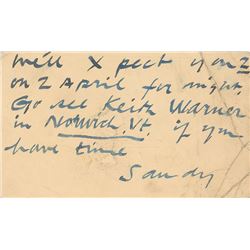 we'll X pect you 2
on 2 April for night,
Go see Keith Warner
in Norwich, Vt. if you
have time
Sandy